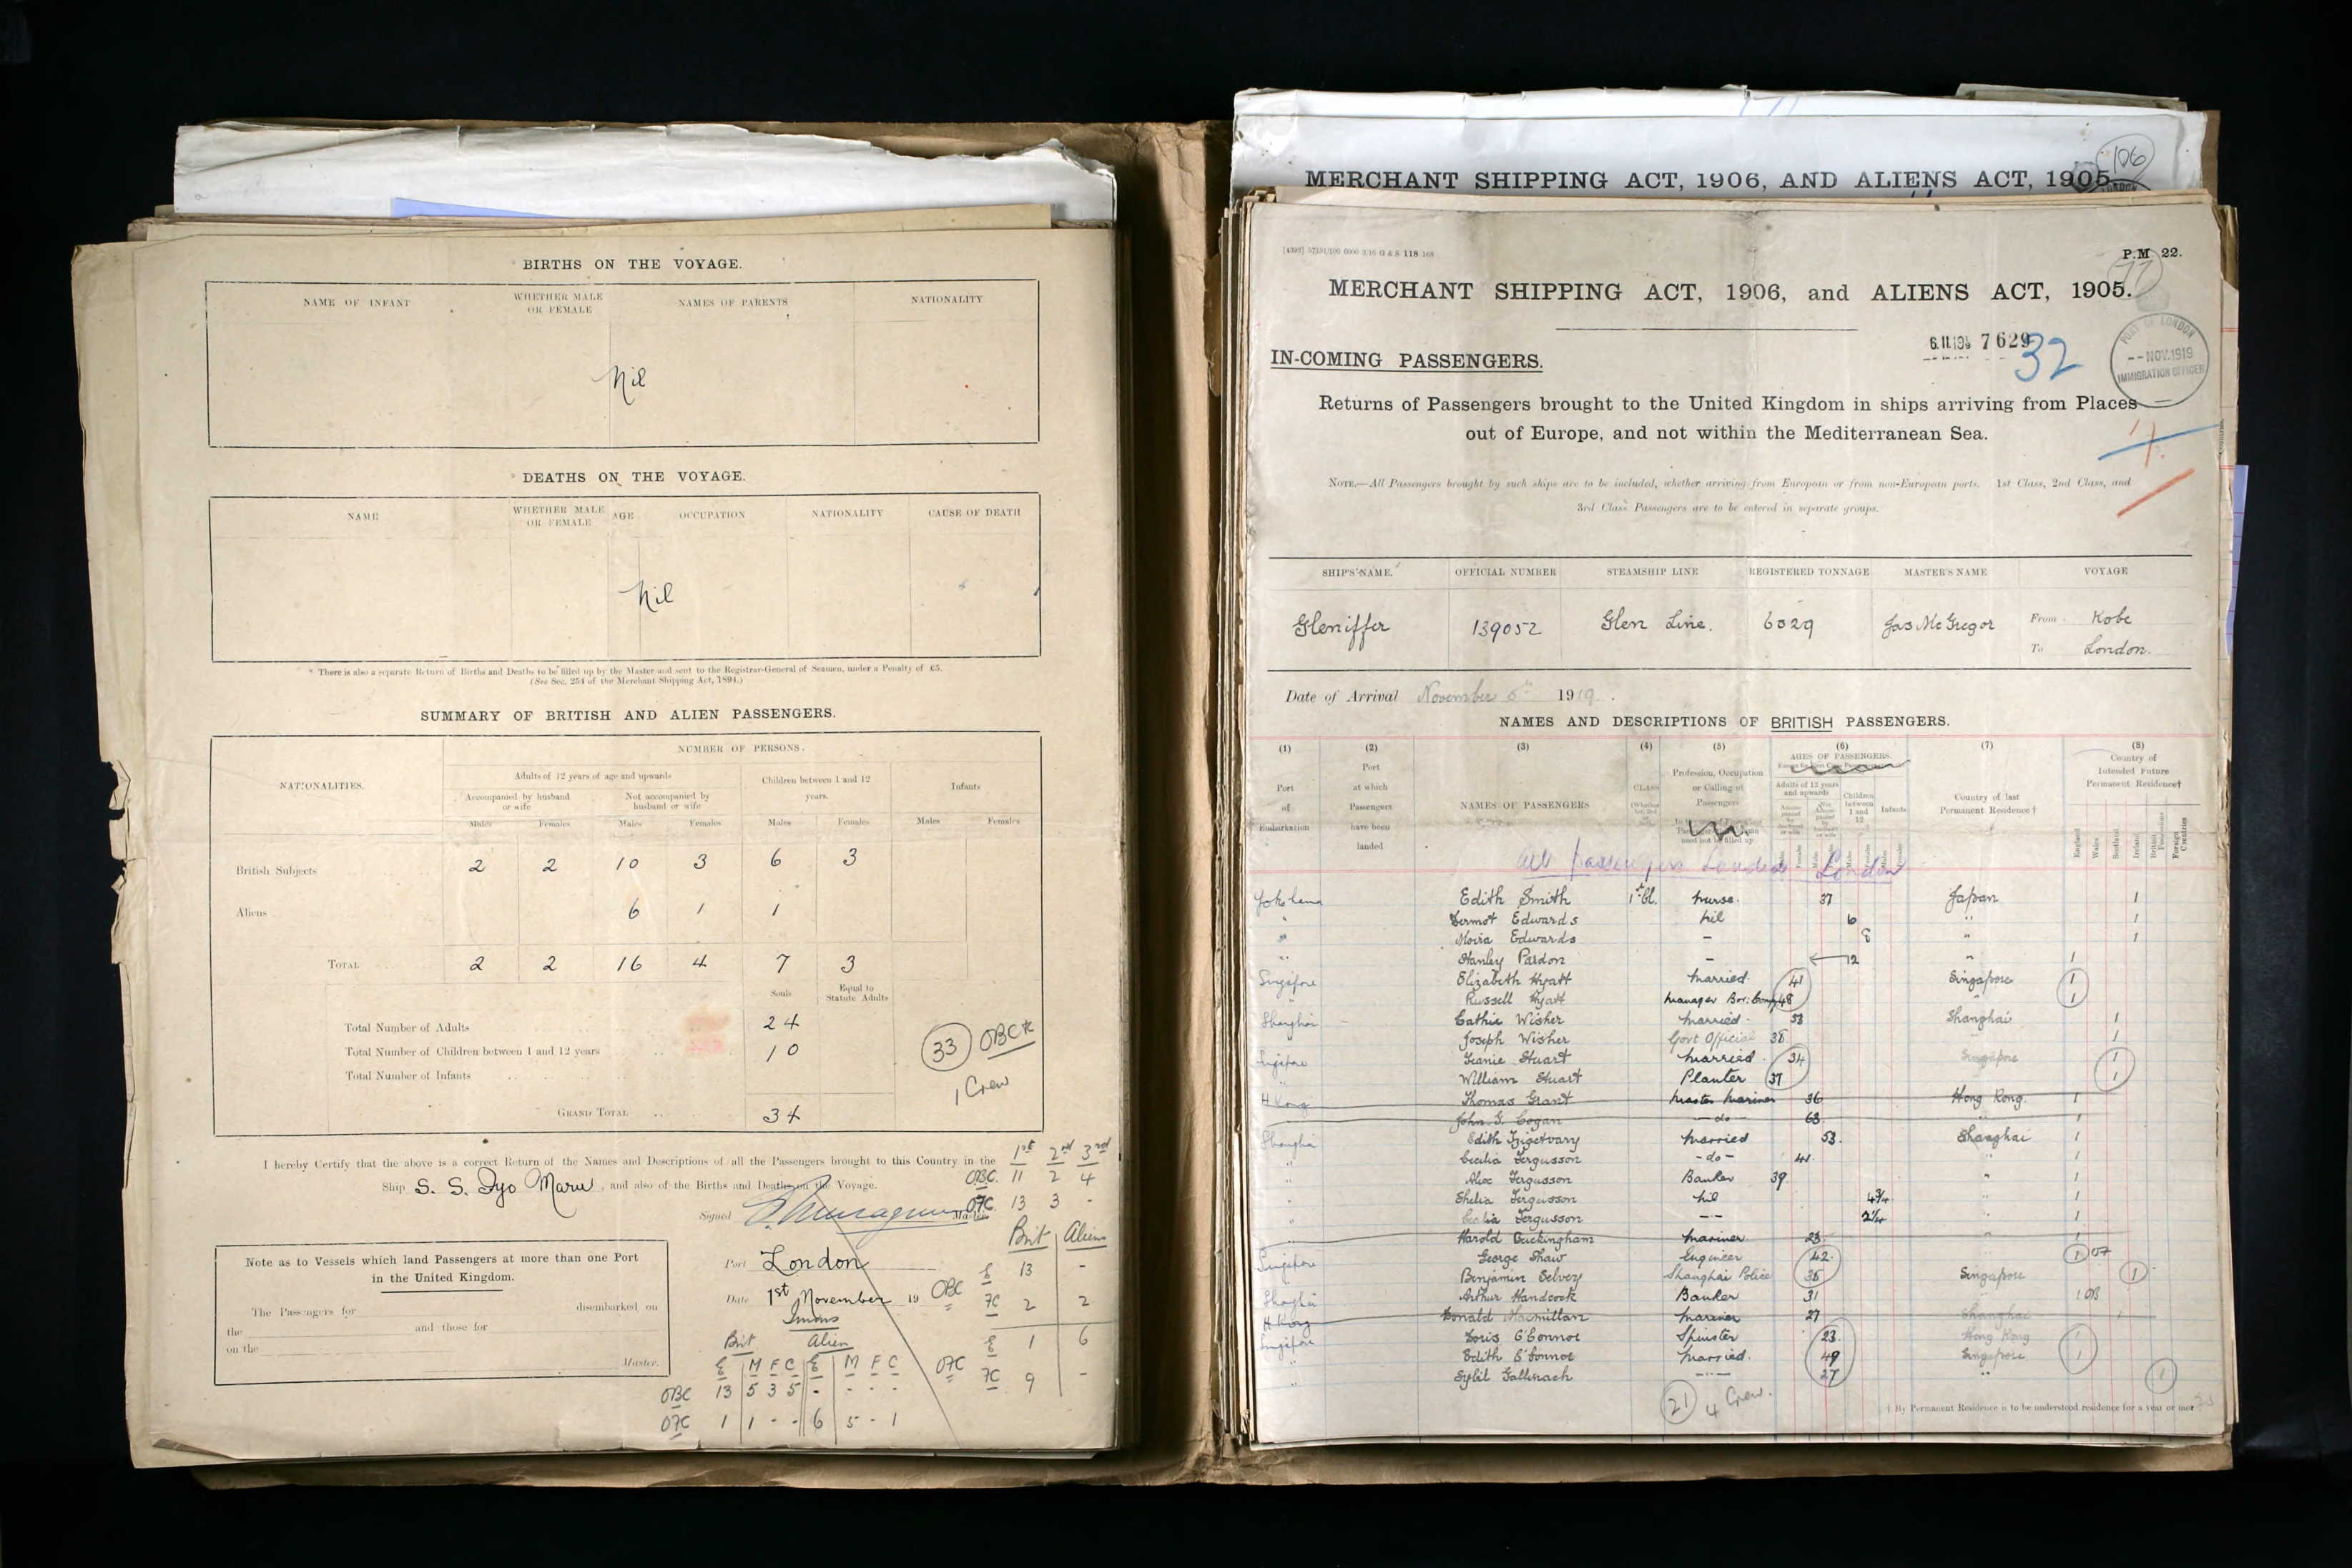 BIRTHS ON THE VOYAGE.
NAME OF INFANT WHETHER MALE OR FEMALE NAMES OF PARENTS NATIONALITY
Nil
DEATHS ON THE VOYAGE.
NAME WHETHER MALE OR FEMALE AGE OCCUPATION NATIONALITY CAUSE OF DEATH
Nil
* There is also a separate Return of Births and Deaths to be filled up by the Master and sent to the Registrar-General of Seamen, under a Penalty of £5.
(See Sec. 254 of the Merchant Shipping Act, 1894.)
SUMMARY OF BRITISH AND ALIEN PASSENGERS.
NUMBER OF PERSONS.
NATIONALITIES.
Adults of 12 years of age and upwards Children between 1 and 12 years. Infants
Accompanied by husband or wife Not accompanied by husband or wife
Males Females Males Females Males Females Males Females
British Subjects 2 2 10 3 6 3
Aliens 6 1 1
TOTAL 2 2 16 4 7 3
Souls Equal to Statute Adults
Total Number of Adults 24
Total Number of Children between 1 and 12 years 10
Total Number of Infants
GRAND TOTAL 34
33 OBC
1 Crew
I hereby Certify that the above is a correct Return of the Names and Descriptions of all the Passengers brought to this Country in the
Ship S. S. Iyo Maru, and also of the Births and Deaths on the Voyage.
Signed Master
1st 2nd 3rd
OBC. 11 2 4
07C. 13 3 -
Brit Aliens
13 -
2 2
1 6
9 -
Port London
Date 1st November 19
Note as to Vessels which land Passengers at more than one Port
in the United Kingdom.
The Passengers for disembarked on
the and those for
on the
Master.
Brit Alien
M F C M F C
OBC 13 5 3 5 - - - -
07C 1 1 - - 6 5 - 1
106
MERCHANT SHIPPING ACT, 1906, AND ALIENS ACT, 1905
P.M 22.
MERCHANT SHIPPING ACT, 1906, and ALIENS ACT, 1905.
7629
32
PORT OF LONDON
-- NOV.1919
IMMIGRATION OFFICER
IN-COMING PASSENGERS.
Returns of Passengers brought to the United Kingdom in ships arriving from Places
out of Europe, and not within the Mediterranean Sea.
NOTE.—All Passengers brought by such ships are to be included, whether arriving from European or from non-European ports. 1st Class, 2nd Class, and
3rd Class Passengers are to be entered in separate groups.
SHIP'S NAME. OFFICIAL NUMBER STEAMSHIP LINE REGISTERED TONNAGE MASTER'S NAME VOYAGE
Gleniffer 139052 Glen Line. 6029 Jas McGregor From Kobe
To London.
Date of Arrival November 6th 1919.
NAMES AND DESCRIPTIONS OF BRITISH PASSENGERS.
(1) (2) (3) (4) (5) (6) (7) (8)
Port of Embarkation
Port at which Passengers have been landed
NAMES OF PASSENGERS
CLASS
Profession, Occupation or Calling of Passengers
AGES OF PASSENGERS.
Adults of 12 years and upwards
Children between 1 and 12
Infants
Country of last Permanent Residence†
Country of Intended Future Permanent Residence†
England Wales Scotland Ireland British Possessions Foreign Countries
All passengers Landed London
Yokohama Edith Smith 1st Cl. Nurse. 37 Japan 1
" Dermot Edwards Nil 6 " 1
" Moira Edwards - 8 " 1
" Stanley Pardon - 12 " 1
Singapore Elizabeth Hyatt Married. 41 Singapore 1
" Russell Hyatt Manager Bor: Comp 48 " 1
Shanghai Cathie Wisher Married - 33 Shanghai 1
Joseph Wisher Govt Official 38 1
Singapore Jeanie Stuart Married. 34 Singapore 1
" William Stuart Planter 37 1
H Kong Thomas Grant Master Mariner 36 Hong Kong. 1
John G. Cogan - do - 63 " 1
Shanghai Edith Szigetvary Married 53. Shanghai 1
" Cecilia Fergusson - do - 41 " 1
" Alex Fergusson Banker 39 " 1
" Shelia Fergusson Nil 4¾ " 1
" Cecilia Fergusson - - 2¼ " 1
" Harold Buckingham Mariner 23. " 1
Singapore George Shaw Engineer 42. 1 07
Benjamin Selvey Shanghai Police 38 Singapore 1
Shanghai Arthur Handcock Banker 31 " 1 OB
H Kong Donald Macmillan Mariner 27 Shanghai 1
Singapore Doris O'Connor Spinster 23. Hong Kong 1
" Edith O'Connor Married. 49 Singapore 1
" Sybil Gallwach - - 27 " 1
21 4 Crew.
† By Permanent Residence is to be understood residence for a year or more